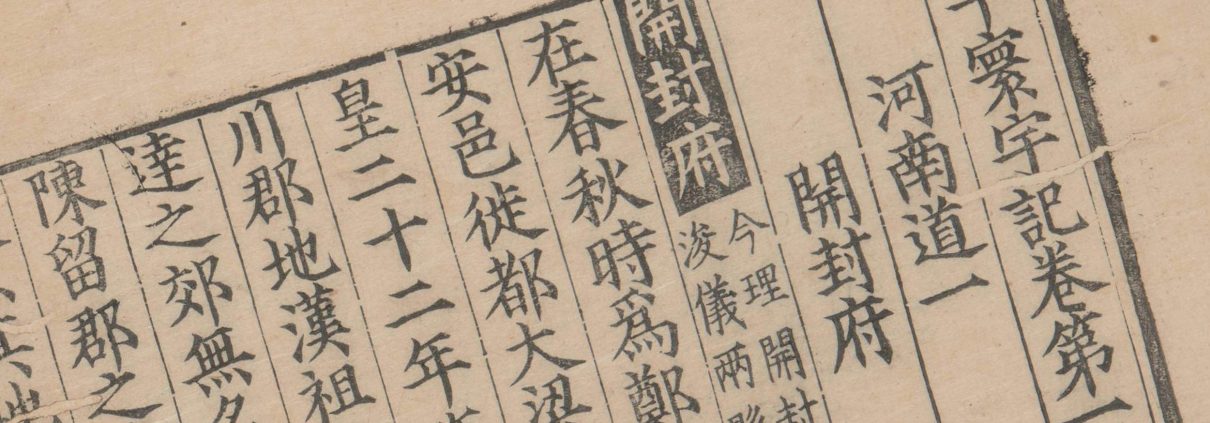 寰宇記卷第一
河南道一
開封府
開封府
今理開封
浚儀兩
在春秋時爲鄭
安邑徙都大梁
皇二十二年
川郡地漢祖
達之郊無名
陳留郡之